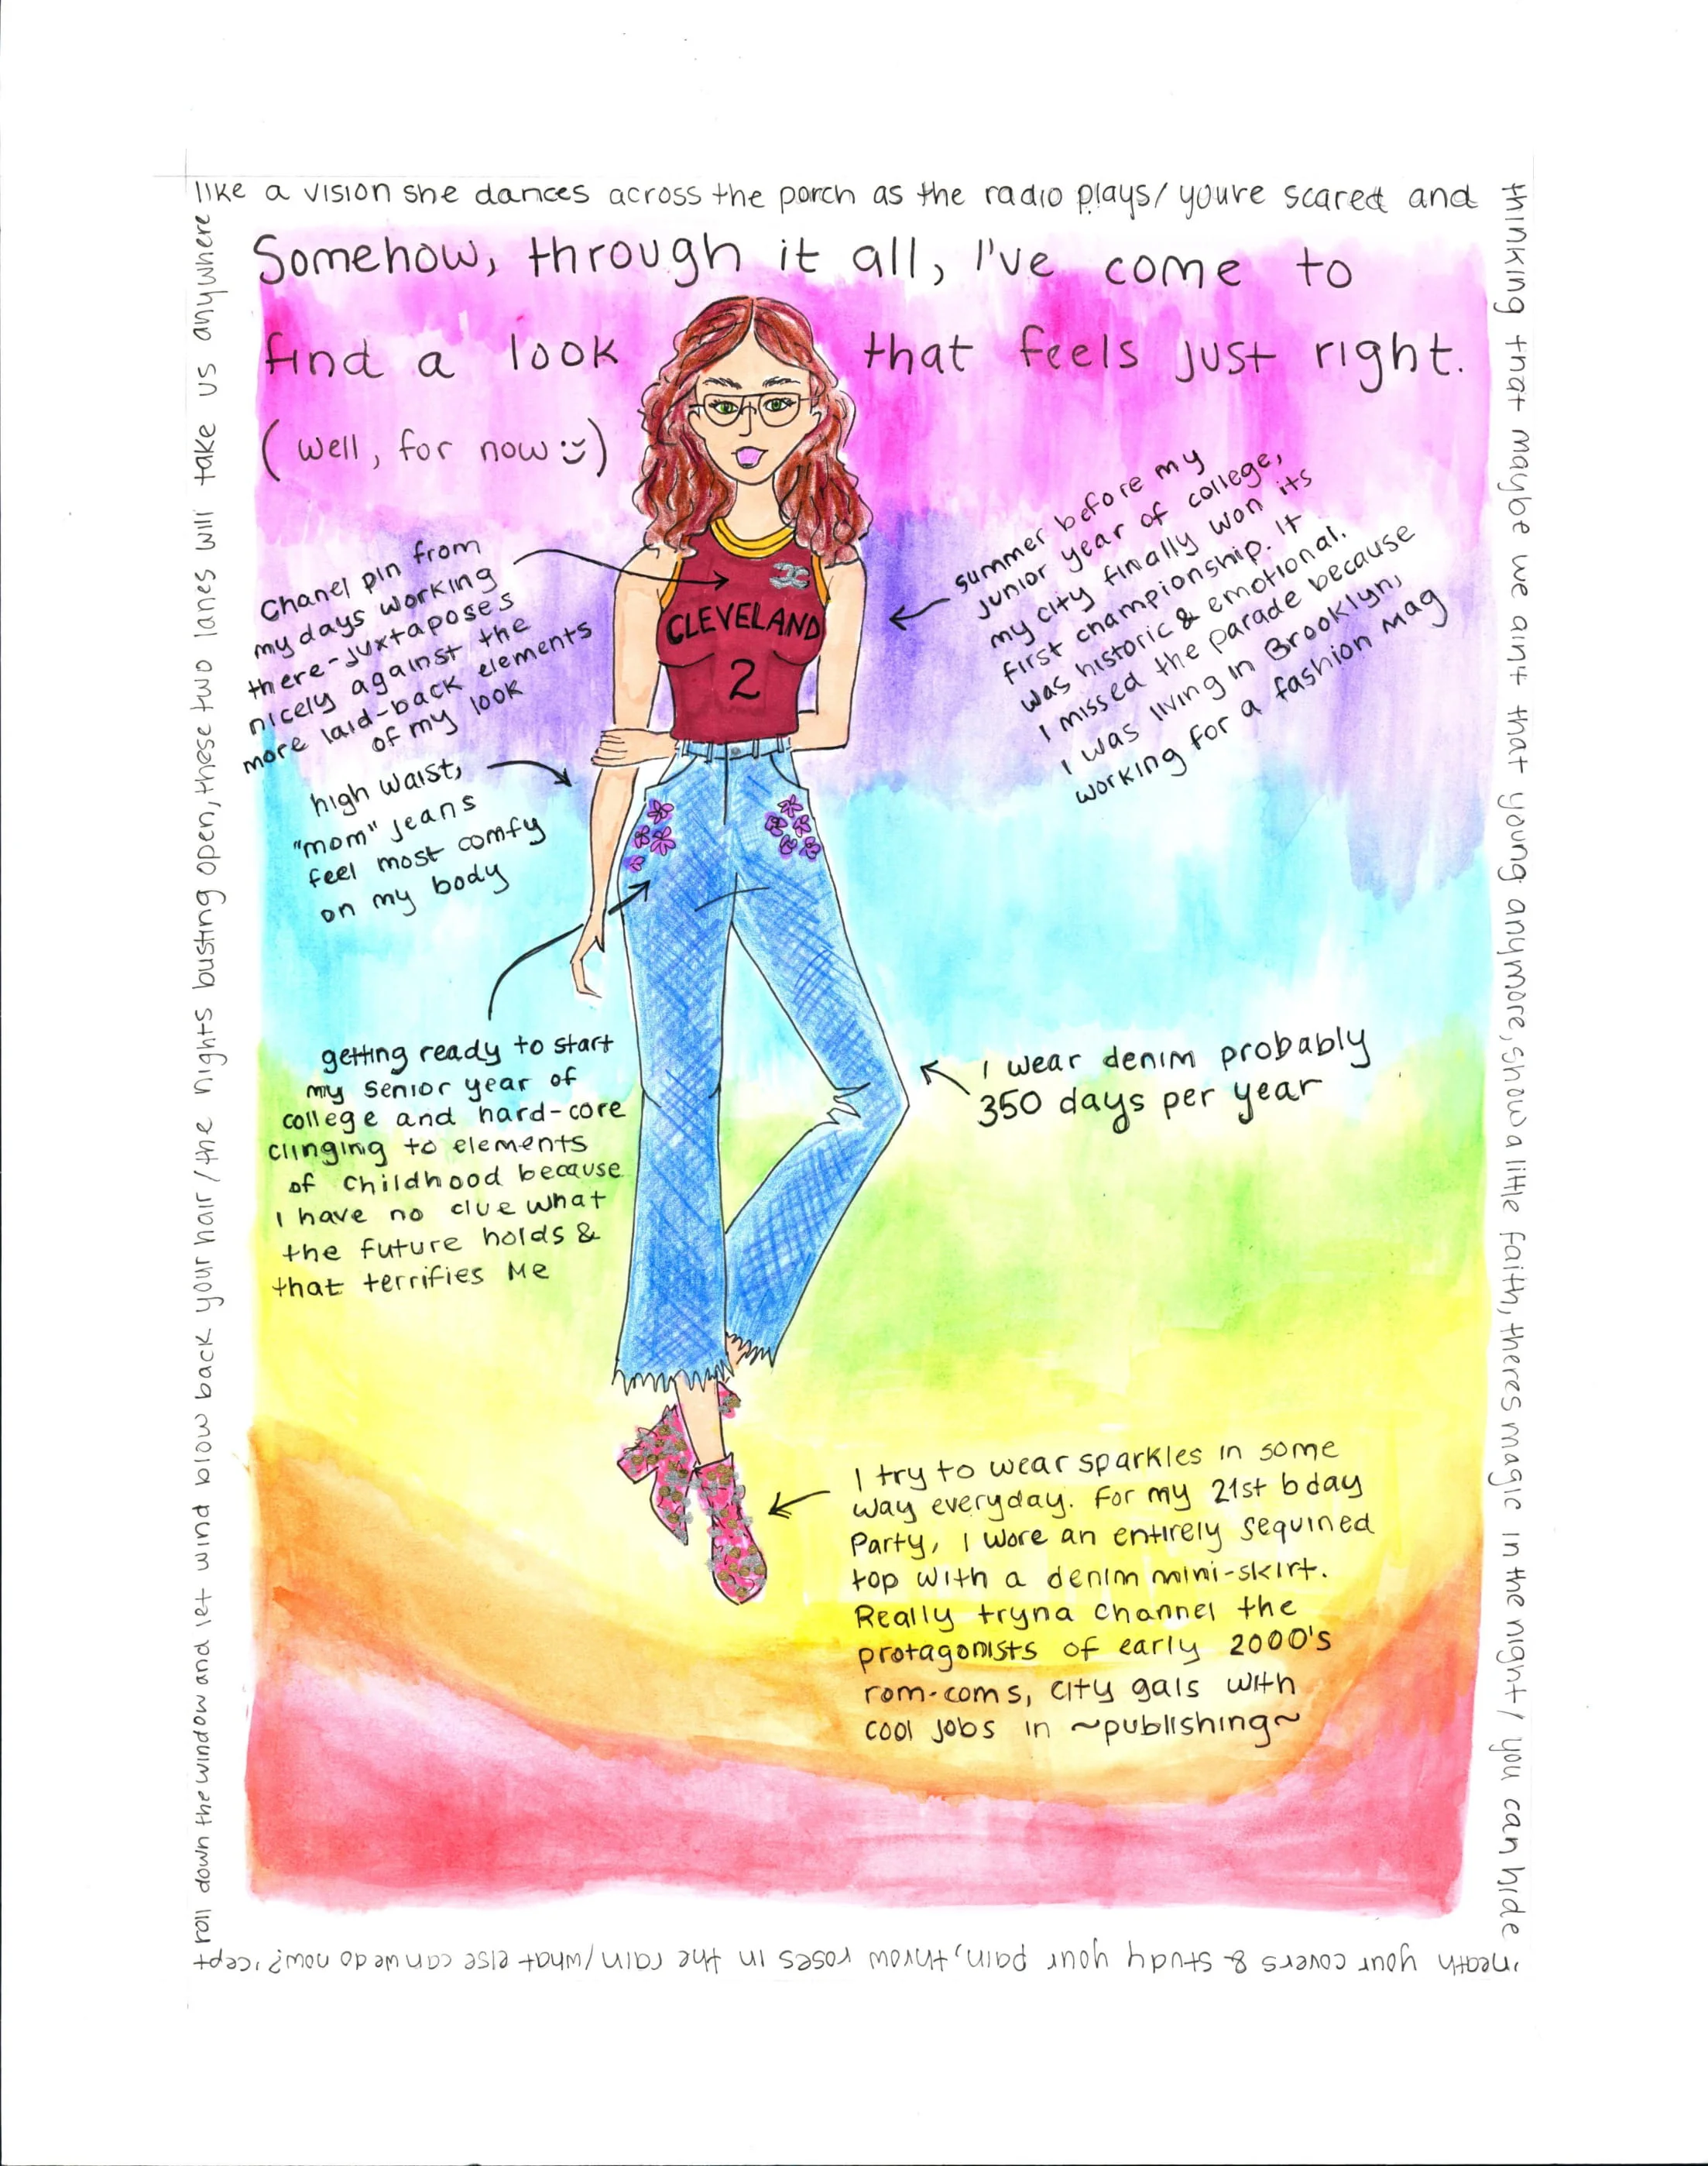 like a vision she dances across the porch as the radio plays/ youre scared and
thinking that maybe we aint that young anymore, show a little faith, theres magic in the night / you can hide
'neath your covers & study your pain, throw roses in the rain/what else can we do now? 'cept
roll down the window and let wind blow back your hair / the nights busting open, these two lanes will take us anywhere
Somehow, through it all, I've come to
find a look that feels just right.
(well, for now :))
Chanel pin from
my days working
there-juxtaposes
nicely against the
more laid-back elements
of my look
CLEVELAND
2
summer before my
junior year of college,
my city finally won its
first championship. It
was historic & emotional.
I missed the parade because
I was living in Brooklyn,
working for a fashion mag
high waist,
"mom" jeans
feel most comfy
on my body
getting ready to start
my senior year of
college and hard-core
clinging to elements
of childhood because
I have no clue what
the future holds &
that terrifies me
I wear denim probably
350 days per year
I try to wear sparkles in some
way everyday. For my 21st bday
Party, I wore an entirely sequined
top with a denim mini-skirt.
Really tryna channel the
protagonists of early 2000's
rom-coms, city gals with
cool jobs in ~publishing~